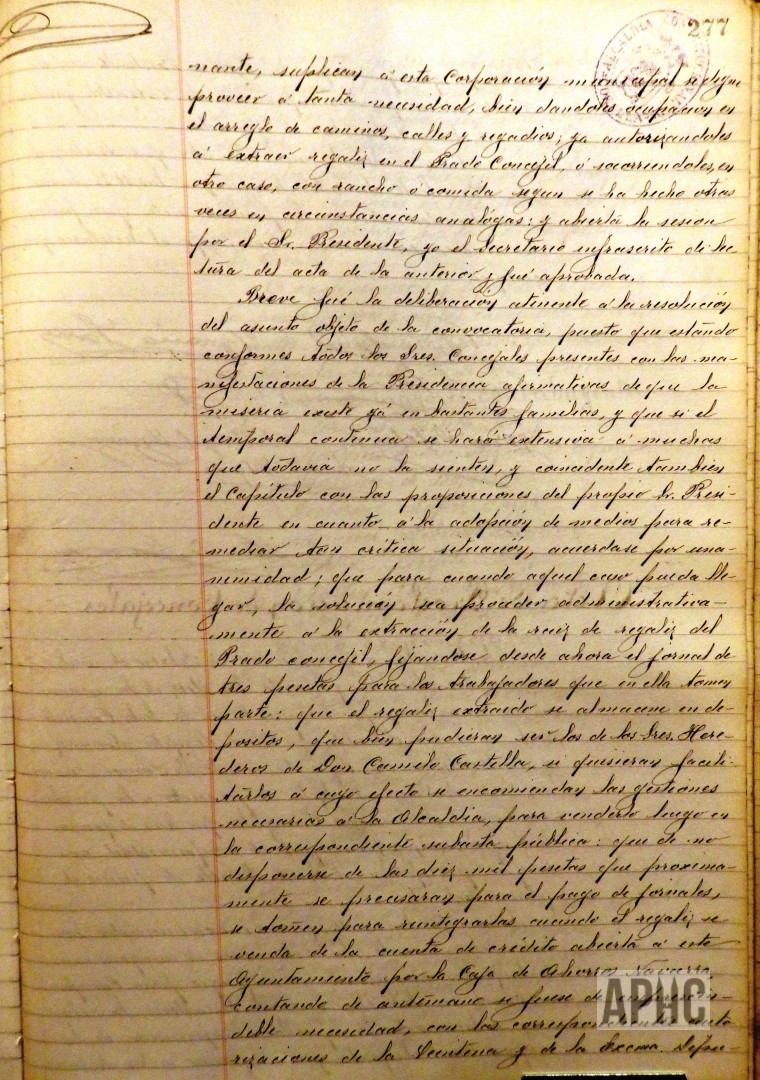 277
nante, suplican á esta Corporación municipal se digne
proveer á tanta necesidad, bien dandoles ocupacion en
el arreglo de caminos, calles y regadios; ya autorizandoles
á extraer regaliz en el Prado Concejil, ó socorriendoles, en
otro caso, con rancho ó comida segun se ha hecho otras
veces en circunstancias análogas: y abierta la sesion
por el Sr. Presidente, yo el Secretario infrascrito di lec
tura del acta de la anterior y fué aprobada.
Breve fué la deliberación atinente á la resolución
del asunto objeto de la convocatoria, puesto que estando
conformes todos los Sres. Concejales presentes con las ma-
nifestaciones de la Presidencia afirmativas de que la
miseria existe yá en bastantes familias, y que si el
temporal continua se hará extensiva á muchas
que todavia no la sienten, y coincidente tambien
el Capítulo con las proposiciones del propio Sr. Presi-
dente en cuanto á la adopción de medios para re-
mediar tan crítica situación, acuerdase por una-
nimidad; que para cuando aquel caso pueda lle-
gar, la solución sea proceder administrativa-
mente á la extracción de la raiz de regaliz del
Prado concejil, fijandose desde ahora el jornal de
tres pesetas para los trabajadores que en ella tomen
parte: que el regaliz extraido se almacene en de-
positos, que bien pudieran ser los de los Sres. Here-
deros de Don Camilo Castella, si quisieran facili-
tarlos á cuyo efecto se encomiendan las gestiones
necesarias á la Alcaldia, para venderlo luego en
la correspondiente subasta pública: que de no
disponerse de las diez mil pesetas que proxima-
mente se precisaran para el pago de jornales,
se tomen para reintegrarlas cuando el regaliz se
venda de la cuenta de crédito abierta á este
Ayuntamiento por la Caja de Ahorros Navarra,
contando de antemano si fuese de imprescin-
dible necesidad, con las correspondientes auto
rizaciones de la Quintena y de la Excma. Dipu-
APHC